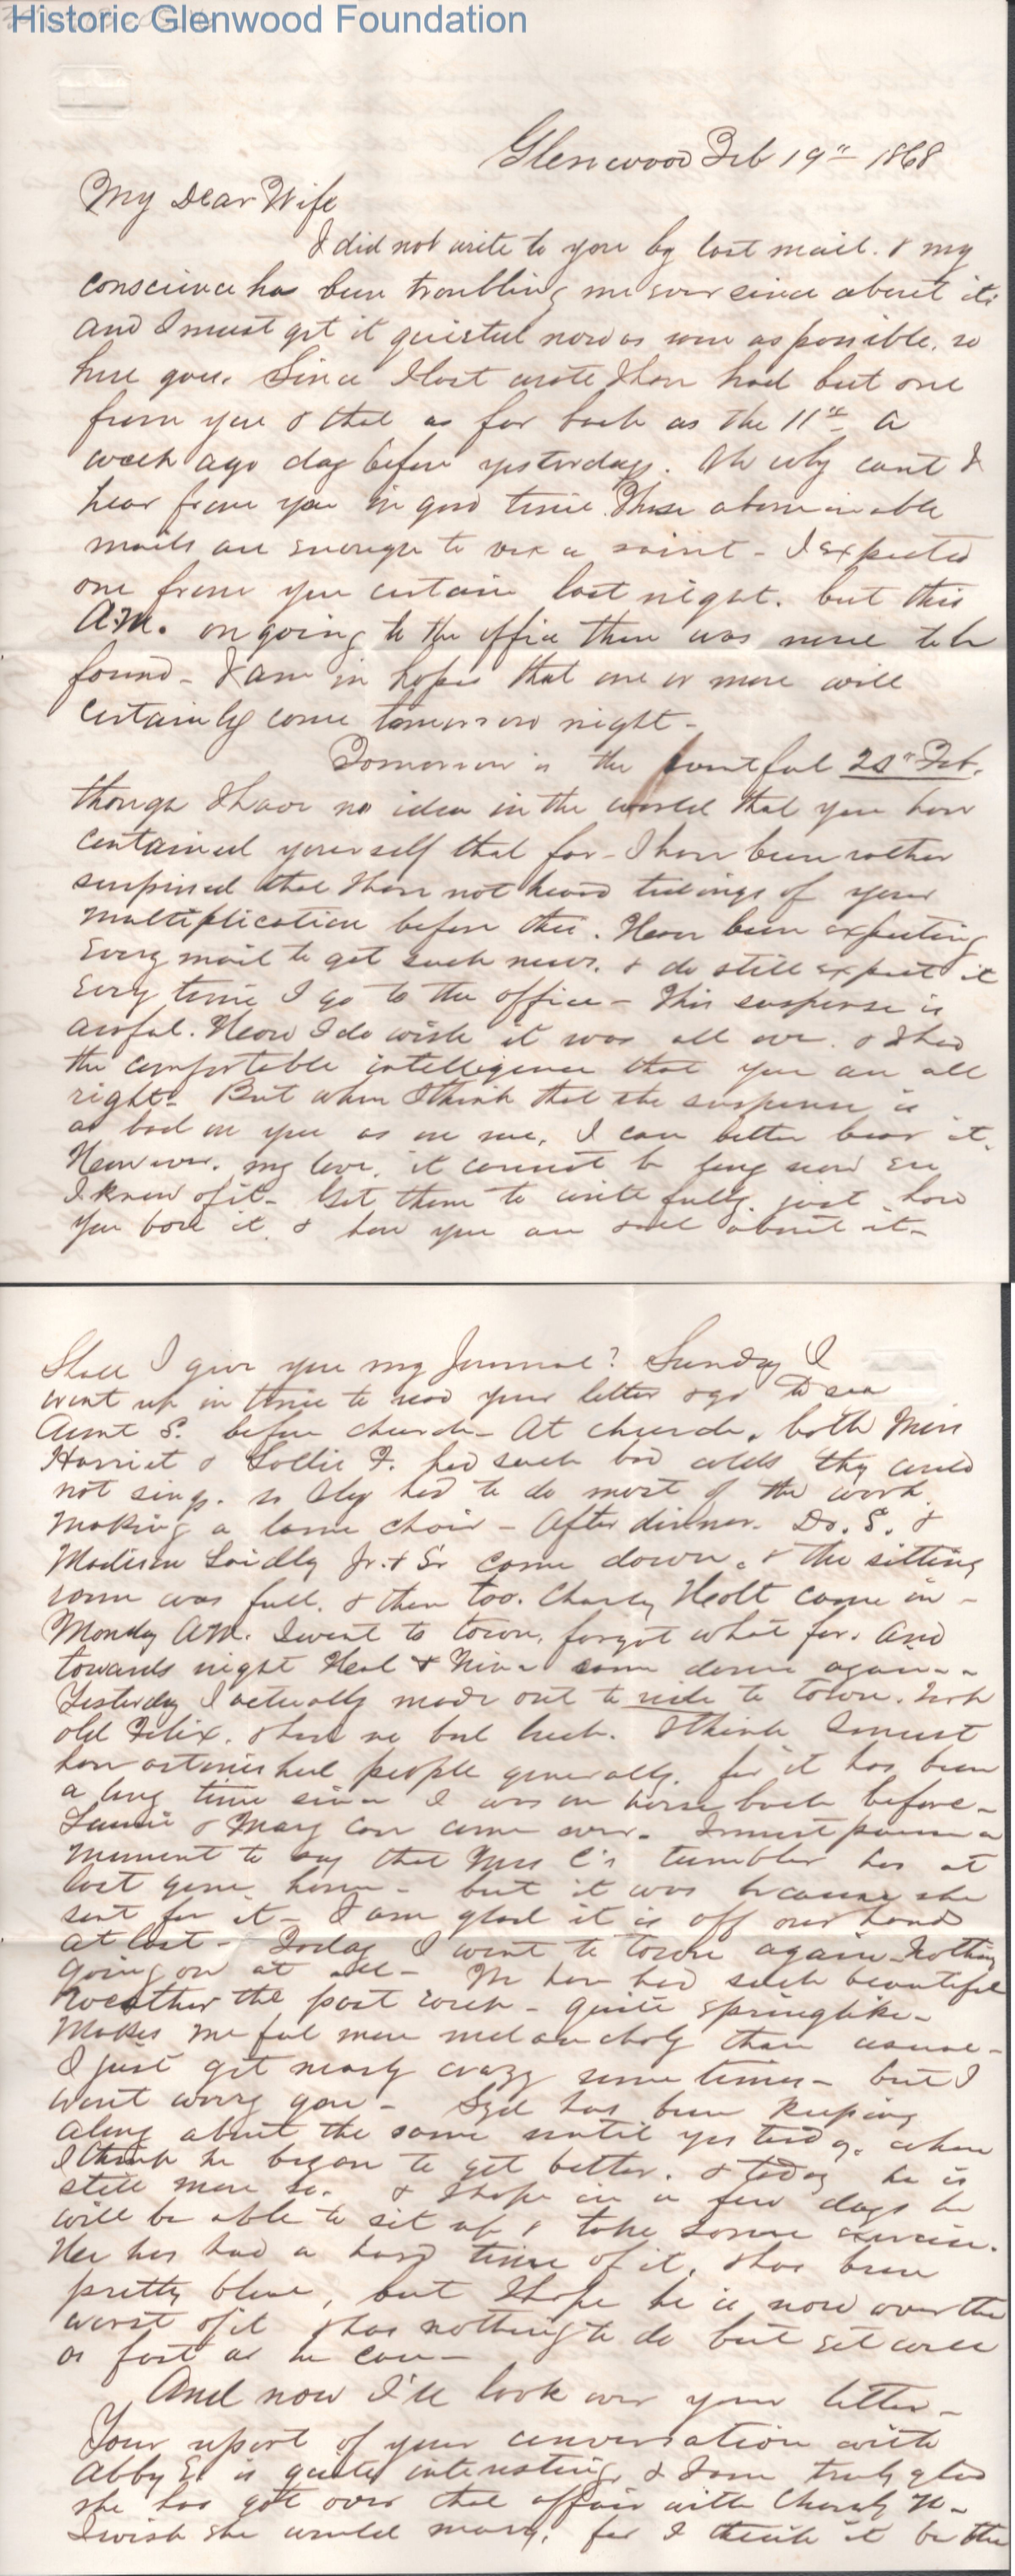 Historic Glenwood Foundation
Glenwood Feb 19th 1868
My Dear Wife
I did not write to you by last mail. & my
conscience has been troubling me ever since about it:
and I must get it quieted now as soon as possible. so
here goes. Since I last wrote I have had but one
from you & that as far back as the 11th a
week ago day before yesterday. Oh why cant I
hear from you in good time. These abominable
mails are enough to vex a saint - I expected
one from you certain last night. but this
A.M. on going to the office there was none to be
found - I am in hopes that one or more will
certainly come tomorrow night -
Tomorrow is the eventful 20th Feb.
though I have no idea in the world that you have
contained yourself that far - I have been rather
surprised that I have not heard tidings of your
multiplication before this. Have been expecting
every mail to get such news. & do still expect it
every time I go to the office - This suspense is
awful. How I do wish it was all over. & I had
the comfortable intelligence that you are all
right - But when I think that the suspense is
as bad on you as on me, I can better bear it.
However. my love. it cannot be long now ere
I know of it - Get them to write fully. just how
you bore it. & how you are & all about it -
Shall I give you my Journal? Sunday I
went up in time to read your letter & go to see
Aunt S. before church - At church. both Miss
Harriet & Sollie F. had such bad colds they could
not sing. so Aly had to do most of the work.
making a lame choir - After dinner. Dr. S. &
Madison Laidly Jr. & Sr came down. & the sitting
room was full. & then too. Charley Holt came in -
Monday A.M. I went to town. forgot what for. And
towards night Hal & Nina came down again -
Yesterday I actually made out to ride to town. took
old Felix. & had no bad luck. I think I must
have astonished people generally. for it has been
a long time since I was on horse back before -
Laurie & Mary Carr came over. I must pause a
moment to say that Mrs C's tumbler has at
last gone home - but it was because she
sent for it - I am glad it is off our hands
at last - Today I went to town again - Nothing
going on at all - We have had such beautiful
weather the past week - quite springlike -
Makes me feel more melancholy than usual -
I just get nearly crazy some times - but I
wont worry you - Syd has been keeping
along about the same until yesterday. when
I think he began to get better. & today he is
still more so. & I hope in a few days he
will be able to sit up & take some exercise.
He has had a hard time of it. & has been
pretty blue, but I hope he is now over the
worst of it & has nothing to do but get well
as fast as he can -
And now I'll look over your letter -
Your report of your conversation with
Abby E. is quite interesting, & I am truly glad
she has got over that affair with Charly H -
I wish she would marry, for I think it be the